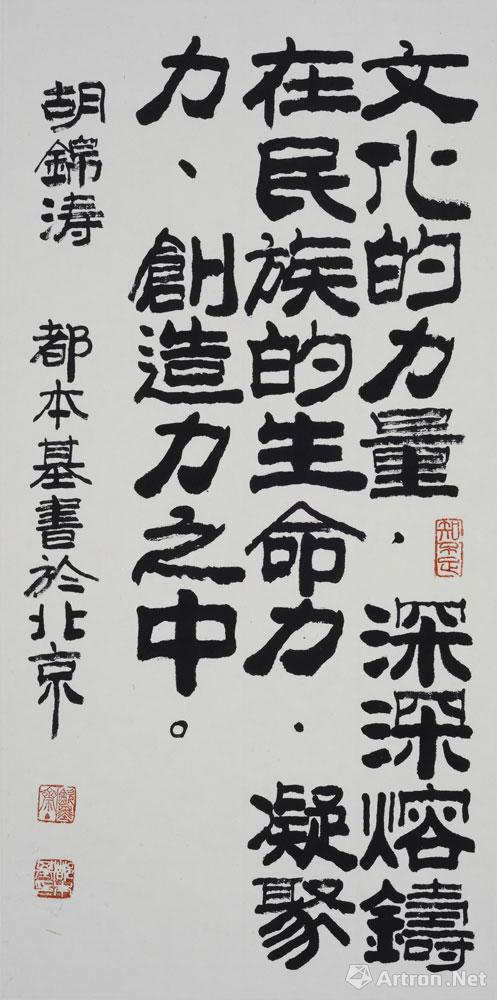 文化的力量．深深熔鑄
在民族的生命力．凝聚
力、創造力之中。
胡錦涛 都本基書於北京
知不足
雅昌艺术网
Artron.Net